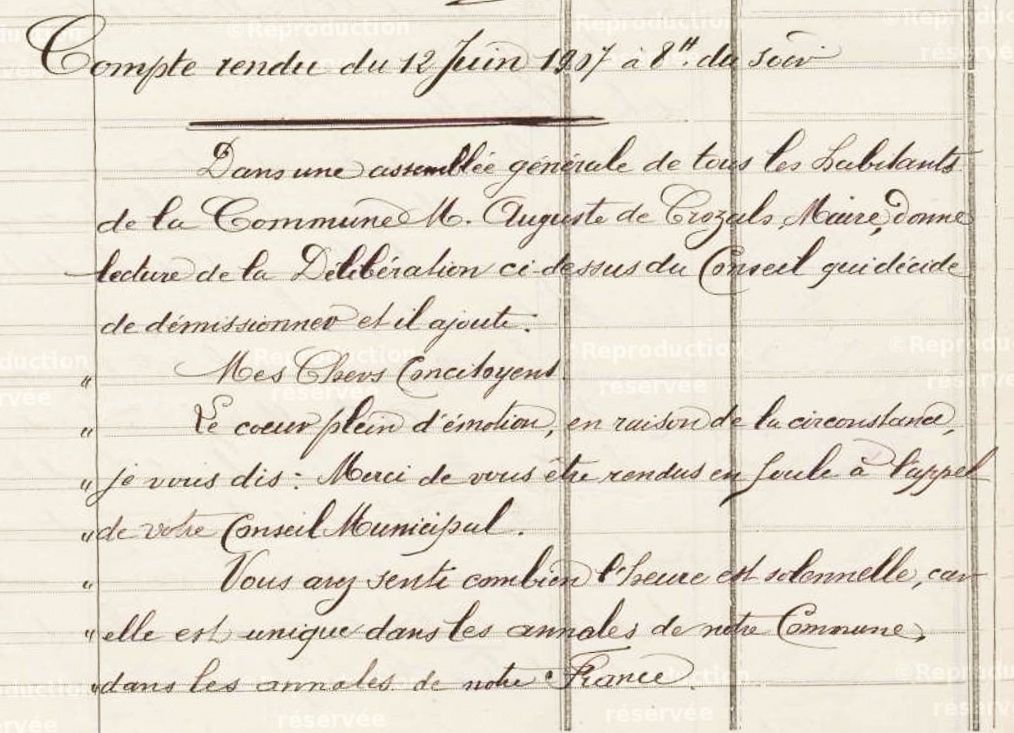 Compte rendu du 12 Juin 1907 à 8H. du soir
Dans une assemblée générale de tous les habitants
de la Commune M. Auguste de Crozals, Maire, donne
lecture de la Délibération ci-dessus du Conseil qui décide
de démissionner et il ajoute :
" Mes Chers Concitoyens.
" Le coeur plein d'émotion, en raison de la circonstance,
" je vous dis : Merci de vous être rendus en foule à l'appel
" de votre Conseil Municipal.
" Vous avez senti combien l'heure est solennelle, car
" elle est unique dans les annales de notre Commune,
" dans les annales de notre France.